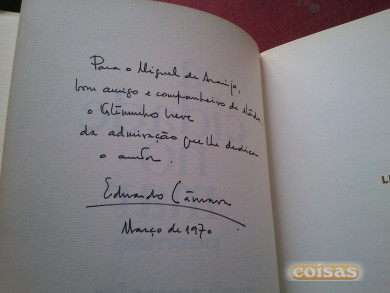 Para o Miguel de Araújo,
bom amigo e companheiro de
o testemunho breve
da admiração que lhe dedica
o autor.
Eduardo Câmara
Março de 1970
coisas